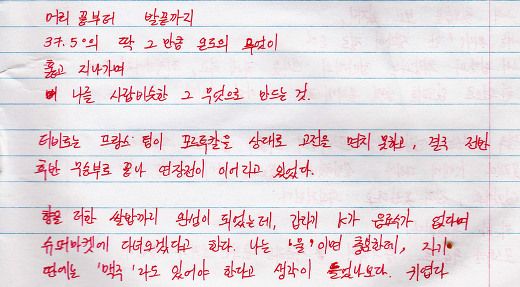 머리 끝부터 발끝까지
37.5°의 딱 그 만큼 온도의 무엇이
훑고 지나가며
나를 사람비슷한 그 무엇으로 만드는 것.
티비로는 프랑스 팀이 포르투칼을 상대로 고전을 면치 못하고, 결국 전반
후반 무승부로 끝나 연장전이 이어라고 있었다.
더한 쌈밥까지 완성이 되었는데, 갑자기 K가 음료수가 없다며
슈퍼마켓에 다녀오겠다고 한다. 나는 '물'이면 충분한데, 자기
딴에는 '맥주'라도 있어야 한다고 생각이 들었나보다. 귀엽다